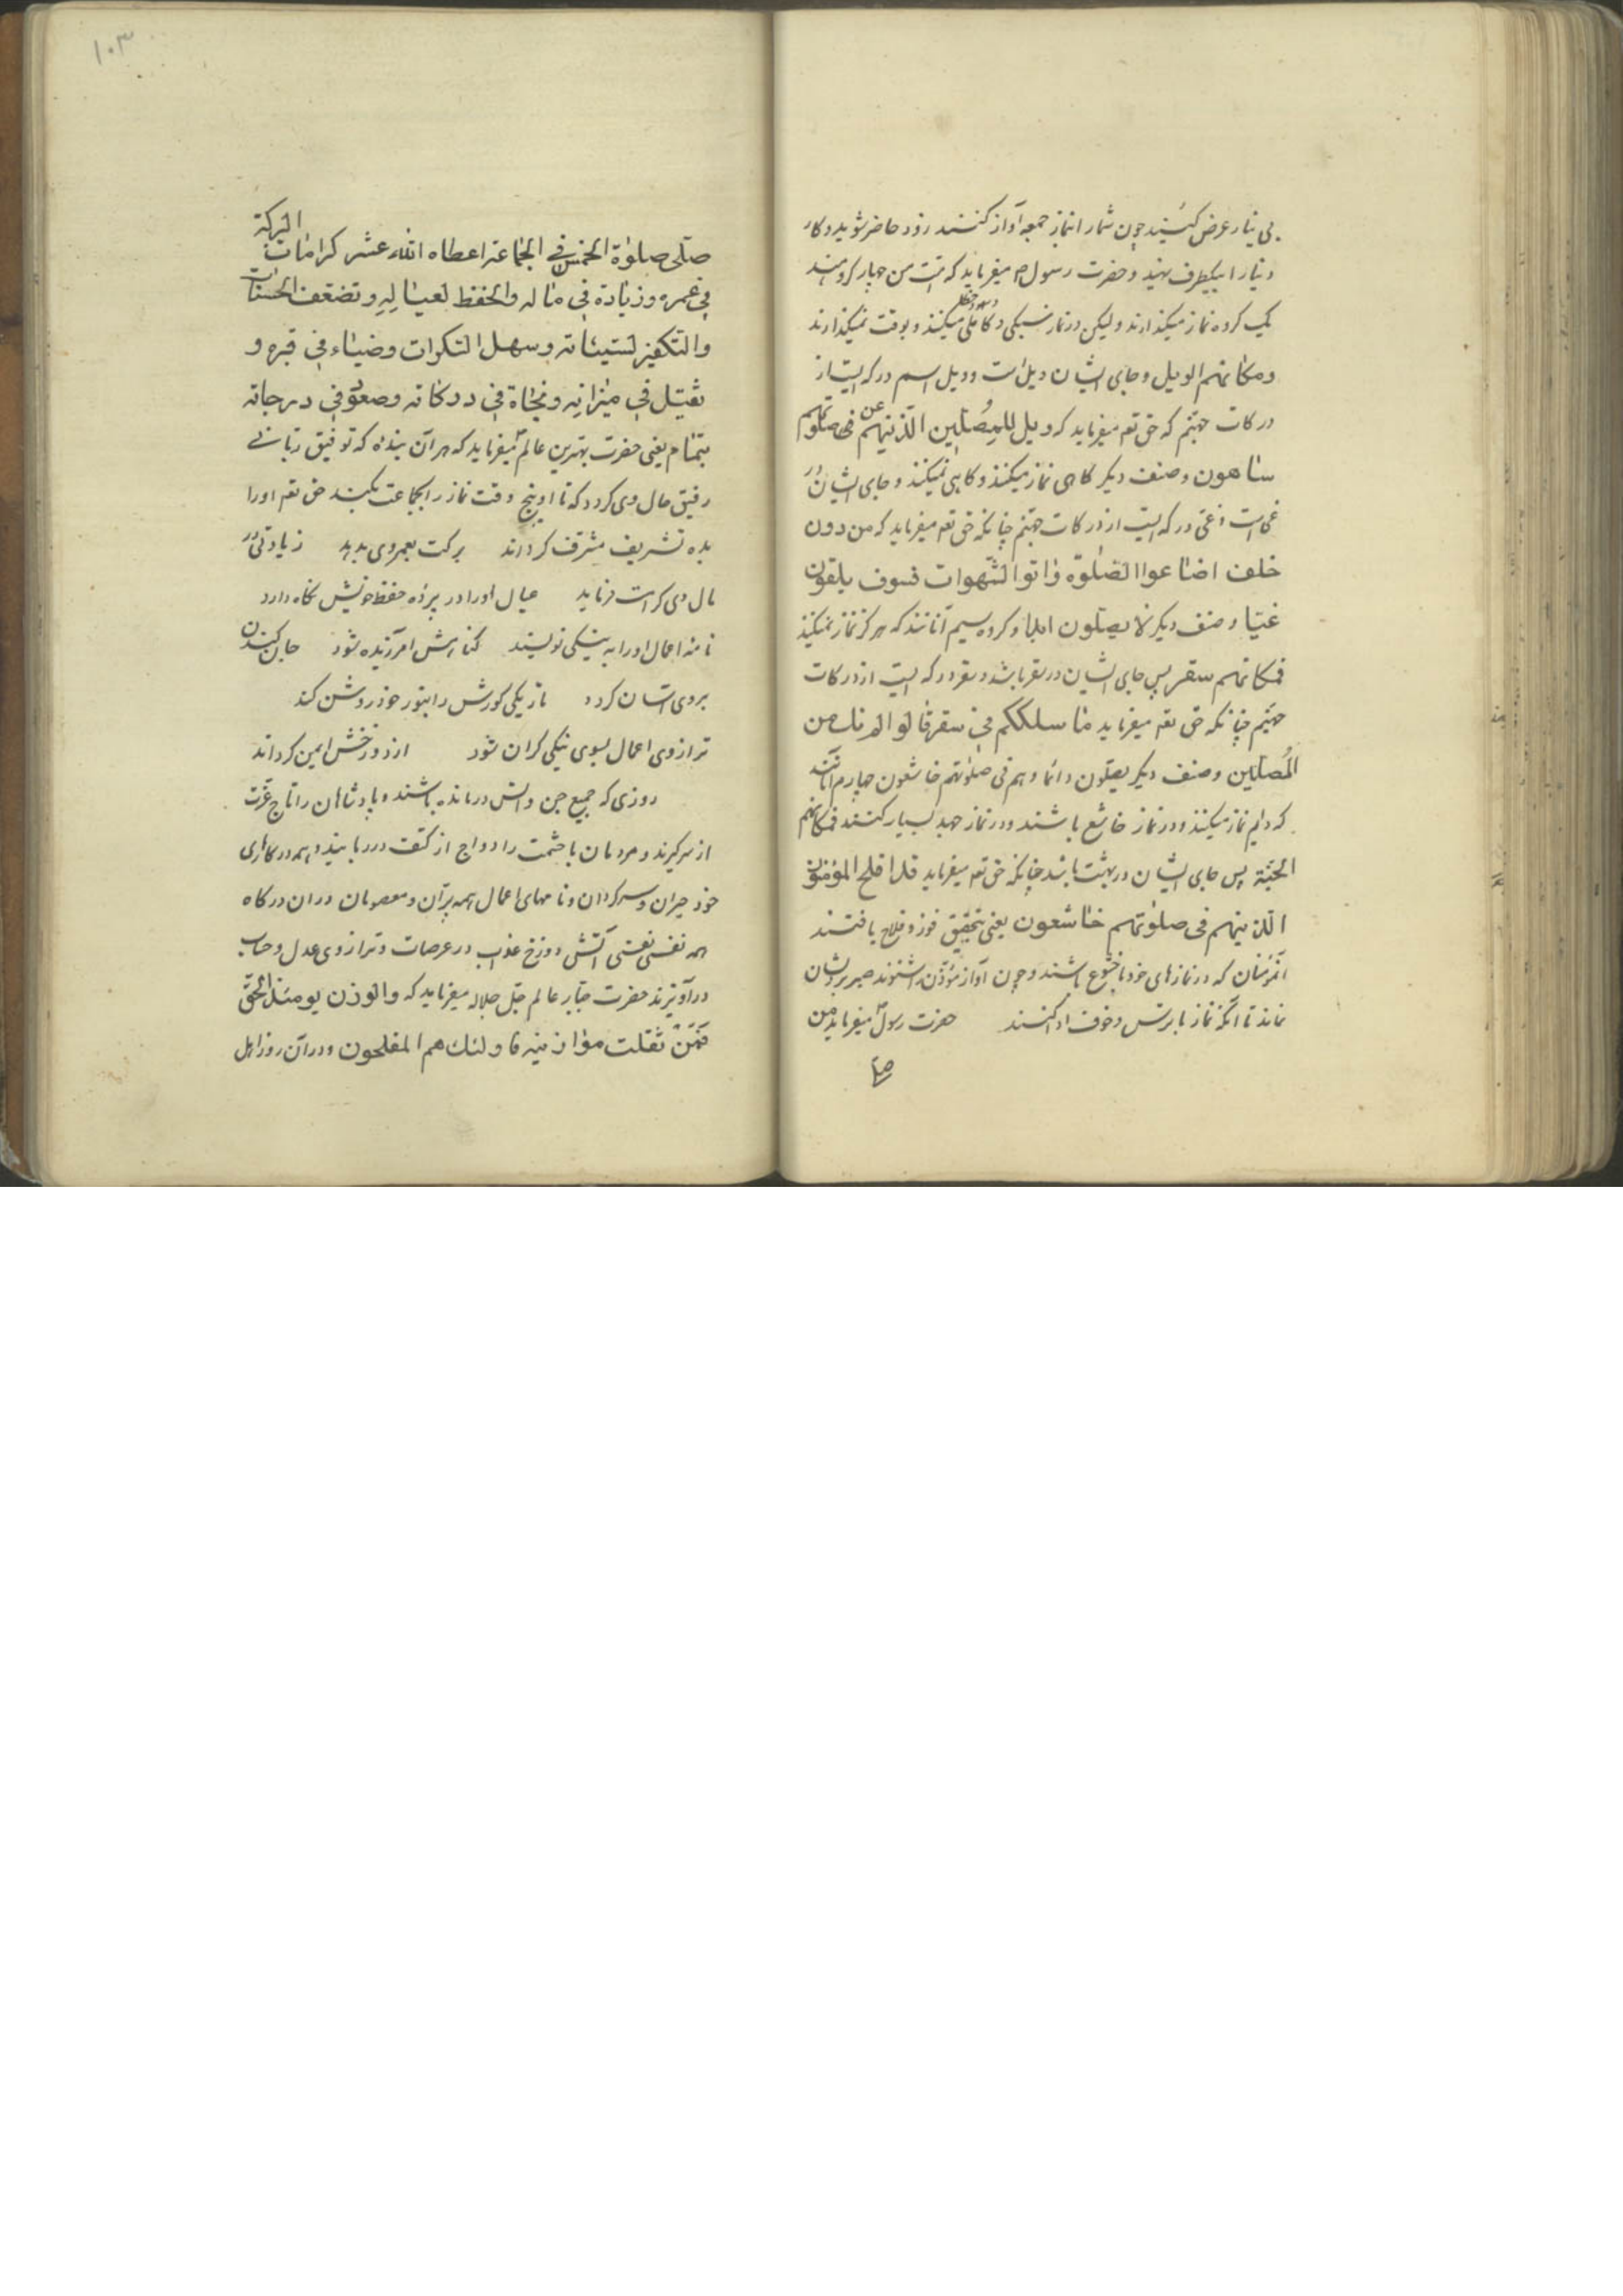 بی نیاز عرض کنید چون شمارا نماز جمعه آواز کنند زود حاضر شوید و کار
دنیا را بیکطرف نهید و حضرت رسول ص میفرماید که امت من چهار گروهند
یک گروه نماز میگذارند ولیکن در نماز سبکی و کاهلی میکنند و بوقت نمیگذارند
ومکانهم الویل و جای ایشان ویل است و ویل اسم درکه ایست از
درکات جهنم که حق تعه میفرماید که ویل للمصلین الذینهم عن فی صلوتهم
ساهون و صنف دیکر کاهی نماز میکنند و کاهی نمیکنند و جای ایشان در
غی است و غی درکه ایست از درکات جهنم چنانکه حق تعه میفرماید که من دون
خلف اضاعوا الصلوة واتوا الشهوات فسوف یلقون
غیّا و صنف دیکر لا یصلون ابدا و کروه سیم آنانند که هرکز نماز نمیکنند
فمکانهم سقر پس جای ایشان در سقر باشد و سقر درکه ایست از درکات
جهنم چنانکه حق تعه میفرماید ما سلککم فی سقر قالوا لم نک من
المُصلّین و صنف دیکر یصلون دائما و هم فی صلوتهم خاشعون چهارم آنانند
که دایم نماز میکنند و در نماز خاشع باشند و در نماز جهد بسیار کنند فمکانهم
الجنّة پس جای ایشان در بهشت باشد چنانکه حق تعه میفرماید قد افلح المؤمنون
الذینهم فی صلوتهم خاشعون یعنی بتحقیق فوز و فلاح یافتند
آنمؤمنان که در نمازهای خود با خشوع باشند و چون آواز مؤذن بشنوند صبر بریشان
نماند تا آنکه نماز با ترس و خوف ادا کنند حضرت رسولؐ میفرماید من
صلّی
١٠٣
صلّی صلوة الخمس فی الجماعة اعطاه الله عشر کرامات البرکة
فی عمره وزیادة فی ماله والحفظ لعیاله وتضعف الحسنات
والتکفیر لسیئاته وسهل السکرات وضیاء فی قبره و
ثقیل فی میزانه ونجاة فی درکاته وصعود فی درجاته
بتمام یعنی حضرت بهترین عالم میفرماید که هر آن بنده که توفیق ربانی
رفیق حال وی کردد که تا او پنج وقت نماز را بجماعت بکند حق تعه اورا
بده تشریف مشرف کرداند برکت بعمر وی بدهد زیادتی در
مال وی کرامت فرماید عیال اورا در پرده حفظ خویش نکاه دارد
نامه اعمال اورا به نیکی نویسند کناهش آمرزیده شود جان کندن
بروی آسان کردد تاریکی کورش را بنور خود روشن کند
ترازوی اعمال بسوی نیکی کران شود از دوزخش ایمن کرداند
روزی که جمیع جن و انس درمانده باشند و پادشاهان را تاج عزت
از سر کیرند و مردمان با حشمت را دواج از کتف در ربایند و همه در کارای
خود حیران و سرکردان و نامهای اعمال همه پرّان و معصومان در ان درکاه
همه نفسی نفسی آتش دوزخ عذاب در عرصات و ترازوی عدل و حساب
درآویزند حضرت جبار عالم جل جلاله میفرماید که والوزن یومئذ الحقّ
فَمَن ثقلت موازینه فاولئک هم المفلحون و در آن روز اهل